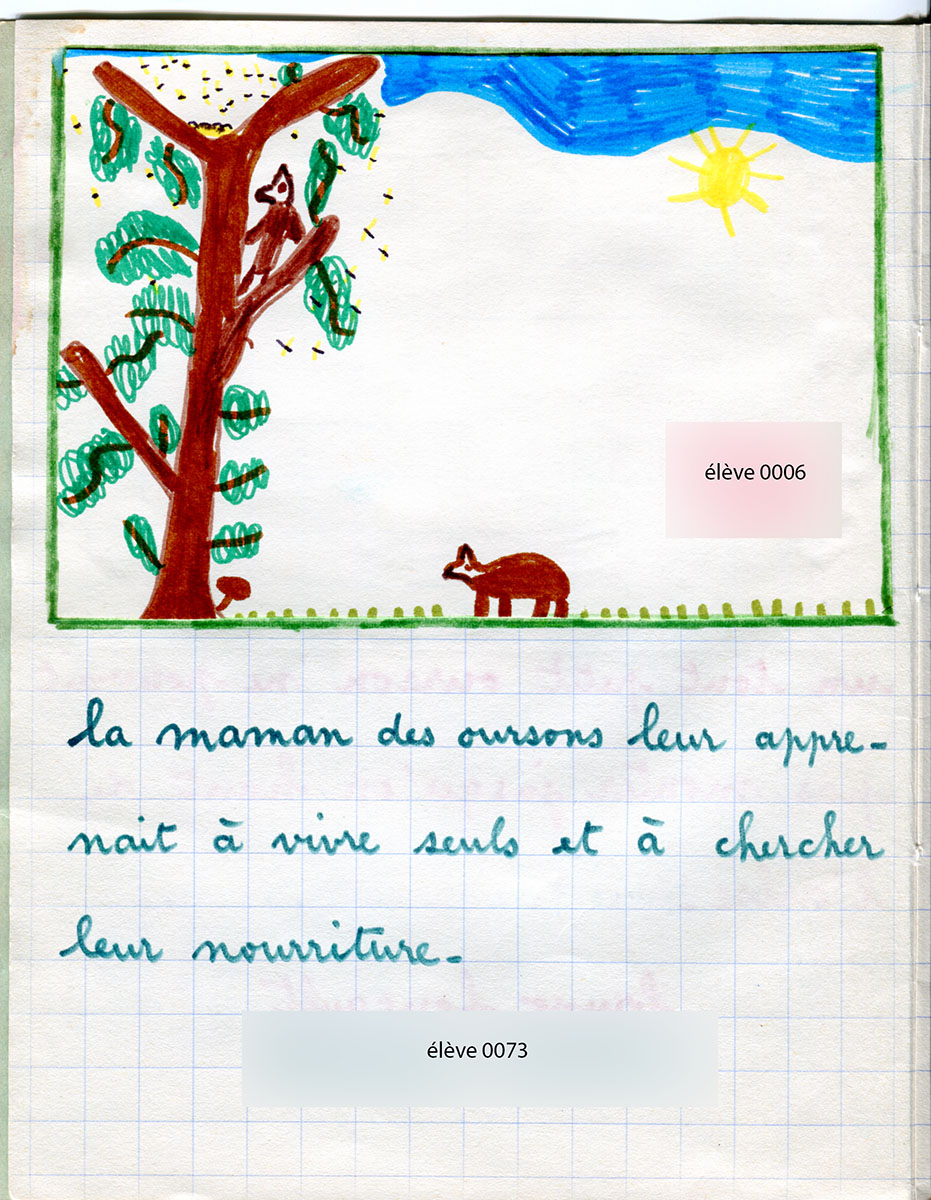 élève 0006
la maman des oursons leur appre-
nait à vivre seuls et à chercher
leur nourriture.
élève 0073